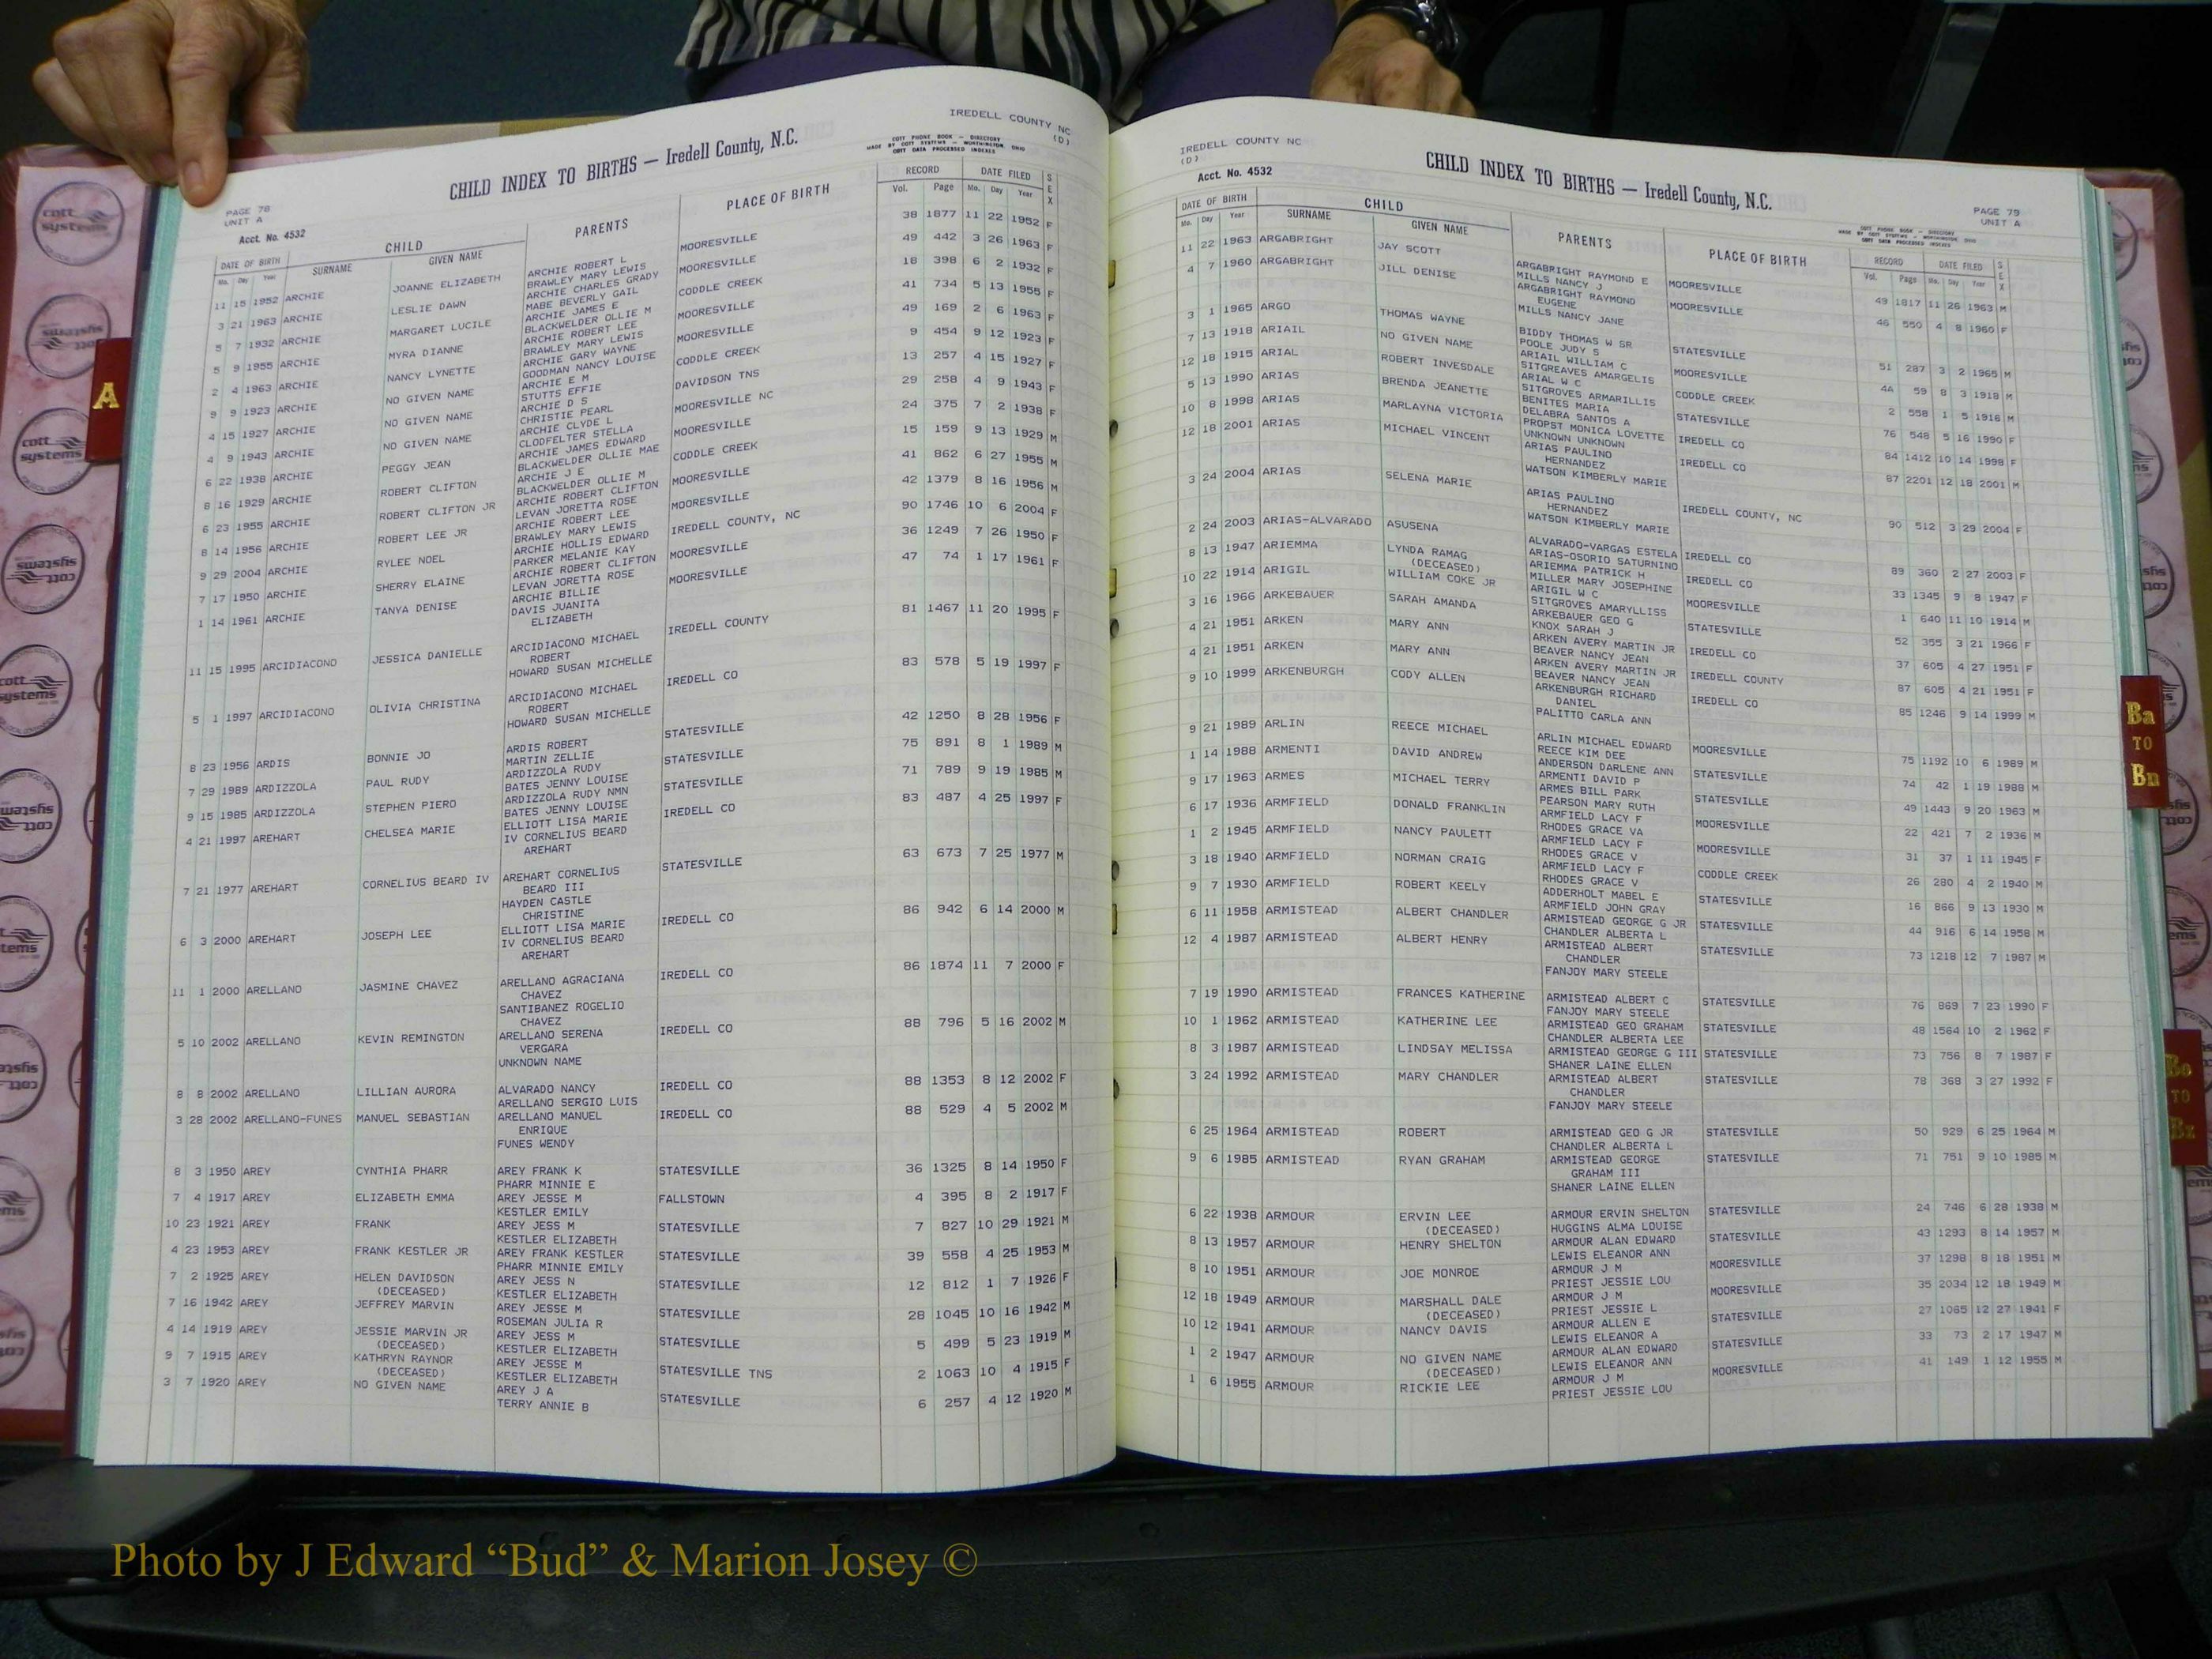 IREDELL COUNTY NC
(D)
CHILD INDEX TO BIRTHS — Iredell County, N.C.
COTT PHONE BOOK — DIRECTORY
MADE BY COTT SYSTEMS — WORTHINGTON, OHIO
COTT DATA PROCESSED INDEXES
PAGE 78
UNIT A
Acct. No. 4532
DATE OF BIRTH CHILD PARENTS PLACE OF BIRTH RECORD DATE FILED SEX
Mo. Day Year SURNAME GIVEN NAME Vol. Page Mo. Day Year
11 15 1952 ARCHIE JOANNE ELIZABETH ARCHIE ROBERT L MOORESVILLE 38 1877 11 22 1952 F
BRAWLEY MARY LEWIS
3 21 1963 ARCHIE LESLIE DAWN ARCHIE CHARLES GRADY MOORESVILLE 49 442 3 26 1963 F
MABE BEVERLY GAIL
5 7 1932 ARCHIE MARGARET LUCILE ARCHIE JAMES E CODDLE CREEK 18 398 6 2 1932 F
BLACKWELDER OLLIE M
5 9 1955 ARCHIE MYRA DIANNE ARCHIE ROBERT LEE MOORESVILLE 41 734 5 13 1955 F
BRAWLEY MARY LEWIS
2 4 1963 ARCHIE NANCY LYNETTE ARCHIE GARY WAYNE MOORESVILLE 49 169 2 6 1963 F
GOODMAN NANCY LOUISE
9 9 1923 ARCHIE NO GIVEN NAME ARCHIE E M CODDLE CREEK 9 454 9 12 1923 F
STUTTS EFFIE
4 15 1927 ARCHIE NO GIVEN NAME ARCHIE D S DAVIDSON TNS 13 257 4 15 1927 F
CHRISTIE PEARL
4 9 1943 ARCHIE NO GIVEN NAME ARCHIE CLYDE L MOORESVILLE NC 29 258 4 9 1943 F
CLODFELTER STELLA
6 22 1938 ARCHIE PEGGY JEAN ARCHIE JAMES EDWARD MOORESVILLE 24 375 7 2 1938 F
BLACKWELDER OLLIE MAE
8 16 1929 ARCHIE ROBERT CLIFTON ARCHIE J E CODDLE CREEK 15 159 9 13 1929 M
BLACKWELDER OLLIE M
6 23 1955 ARCHIE ROBERT CLIFTON JR ARCHIE ROBERT CLIFTON MOORESVILLE 41 862 6 27 1955 M
LEVAN JORETTA ROSE
8 14 1956 ARCHIE ROBERT LEE JR ARCHIE ROBERT LEE MOORESVILLE 42 1379 8 16 1956 M
BRAWLEY MARY LEWIS
9 29 2004 ARCHIE RYLEE NOEL ARCHIE HOLLIS EDWARD IREDELL COUNTY, NC 90 1746 10 6 2004 F
PARKER MELANIE KAY
7 17 1950 ARCHIE SHERRY ELAINE ARCHIE ROBERT CLIFTON MOORESVILLE 36 1249 7 26 1950 F
LEVAN JORETTA ROSE
1 14 1961 ARCHIE TANYA DENISE ARCHIE BILLIE MOORESVILLE 47 74 1 17 1961 F
DAVIS JUANITA
ELIZABETH
11 15 1995 ARCIDIACONO JESSICA DANIELLE ARCIDIACONO MICHAEL IREDELL COUNTY 81 1467 11 20 1995 F
ROBERT
HOWARD SUSAN MICHELLE
5 1 1997 ARCIDIACONO OLIVIA CHRISTINA ARCIDIACONO MICHAEL IREDELL CO 83 578 5 19 1997 F
ROBERT
HOWARD SUSAN MICHELLE
8 23 1956 ARDIS BONNIE JO ARDIS ROBERT STATESVILLE 42 1250 8 28 1956 F
MARTIN ZELLIE
7 29 1989 ARDIZZOLA PAUL RUDY ARDIZZOLA RUDY STATESVILLE 75 891 8 1 1989 M
BATES JENNY LOUISE
9 15 1985 ARDIZZOLA STEPHEN PIERO ARDIZZOLA RUDY NMN STATESVILLE 71 789 9 19 1985 M
BATES JENNY LOUISE
4 21 1997 AREHART CHELSEA MARIE ELLIOTT LISA MARIE IREDELL CO 83 487 4 25 1997 F
IV CORNELIUS BEARD
AREHART
7 21 1977 AREHART CORNELIUS BEARD IV AREHART CORNELIUS STATESVILLE 63 673 7 25 1977 M
BEARD III
HAYDEN CASTLE
CHRISTINE
6 3 2000 AREHART JOSEPH LEE ELLIOTT LISA MARIE IREDELL CO 86 942 6 14 2000 M
IV CORNELIUS BEARD
AREHART
11 1 2000 ARELLANO JASMINE CHAVEZ ARELLANO AGRACIANA IREDELL CO 86 1874 11 7 2000 F
CHAVEZ
SANTIBANEZ ROGELIO
CHAVEZ
5 10 2002 ARELLANO KEVIN REMINGTON ARELLANO SERENA IREDELL CO 88 796 5 16 2002 M
VERGARA
UNKNOWN NAME
8 8 2002 ARELLANO LILLIAN AURORA ALVARADO NANCY IREDELL CO 88 1353 8 12 2002 F
ARELLANO SERGIO LUIS
3 28 2002 ARELLANO-FUNES MANUEL SEBASTIAN ARELLANO MANUEL IREDELL CO 88 529 4 5 2002 M
ENRIQUE
FUNES WENDY
8 3 1950 AREY CYNTHIA PHARR AREY FRANK K STATESVILLE 36 1325 8 14 1950 F
PHARR MINNIE E
7 4 1917 AREY ELIZABETH EMMA AREY JESSE M FALLSTOWN 4 395 8 2 1917 F
KESTLER EMILY
10 23 1921 AREY FRANK AREY JESS M STATESVILLE 7 827 10 29 1921 M
KESTLER ELIZABETH
4 23 1953 AREY FRANK KESTLER JR AREY FRANK KESTLER STATESVILLE 39 558 4 25 1953 M
PHARR MINNIE EMILY
7 2 1925 AREY HELEN DAVIDSON AREY JESS N STATESVILLE 12 812 1 7 1926 F
(DECEASED) KESTLER ELIZABETH
7 16 1942 AREY JEFFREY MARVIN AREY JESSE M STATESVILLE 28 1045 10 16 1942 M
ROSEMAN JULIA R
4 14 1919 AREY JESSIE MARVIN JR AREY JESS M STATESVILLE 5 499 5 23 1919 M
(DECEASED) KESTLER ELIZABETH
9 7 1915 AREY KATHRYN RAYNOR AREY JESSE M STATESVILLE TNS 2 1063 10 4 1915 F
(DECEASED) KESTLER ELIZABETH
3 7 1920 AREY NO GIVEN NAME AREY J A STATESVILLE 6 257 4 12 1920 M
TERRY ANNIE B
IREDELL COUNTY NC
(D)
Acct. No. 4532
CHILD INDEX TO BIRTHS — Iredell County, N.C.
PAGE 79
UNIT A
COTT PHONE BOOK — DIRECTORY
MADE BY COTT SYSTEMS — WORTHINGTON, OHIO
COTT DATA PROCESSED INDEXES
DATE OF BIRTH CHILD PARENTS PLACE OF BIRTH RECORD DATE FILED SEX
Mo. Day Year SURNAME GIVEN NAME Vol. Page Mo. Day Year
11 22 1963 ARGABRIGHT JAY SCOTT ARGABRIGHT RAYMOND E MOORESVILLE 49 1817 11 26 1963 M
MILLS NANCY J
4 7 1960 ARGABRIGHT JILL DENISE ARGABRIGHT RAYMOND MOORESVILLE 46 550 4 8 1960 F
EUGENE
MILLS NANCY JANE
3 1 1965 ARGO THOMAS WAYNE BIDDY THOMAS W SR STATESVILLE 51 287 3 2 1965 M
POOLE JUDY S
7 13 1918 ARIAIL NO GIVEN NAME ARIAIL WILLIAM C MOORESVILLE 4A 59 8 3 1918 M
SITGREAVES AMARGELIS
12 18 1915 ARIAL ROBERT INVESDALE ARIAL W C CODDLE CREEK 2 558 1 5 1916 M
SITGROVES ARMARILLIS
5 13 1990 ARIAS BRENDA JEANETTE BENITES MARIA STATESVILLE 76 548 5 16 1990 F
DELABRA SANTOS A
10 8 1998 ARIAS MARLAYNA VICTORIA PROPST MONICA LOVETTE IREDELL CO 84 1412 10 14 1998 F
UNKNOWN UNKNOWN
12 18 2001 ARIAS MICHAEL VINCENT ARIAS PAULINO IREDELL CO 87 2201 12 18 2001 M
HERNANDEZ
WATSON KIMBERLY MARIE
3 24 2004 ARIAS SELENA MARIE ARIAS PAULINO IREDELL COUNTY, NC 90 512 3 29 2004 F
HERNANDEZ
WATSON KIMBERLY MARIE
2 24 2003 ARIAS-ALVARADO ASUSENA ALVARADO-VARGAS ESTELA IREDELL CO 89 360 2 27 2003 F
ARIAS-OSORIO SATURNINO
8 13 1947 ARIEMMA LYNDA RAMAG ARIEMMA PATRICK H IREDELL CO 33 1345 9 8 1947 F
(DECEASED) MILLER MARY JOSEPHINE
10 22 1914 ARIGIL WILLIAM COKE JR ARIGIL W C MOORESVILLE 1 640 11 10 1914 M
SITGROVES AMARYLLISS
3 16 1966 ARKEBAUER SARAH AMANDA ARKEBAUER GEO G STATESVILLE 52 355 3 21 1966 F
KNOX SARAH J
4 21 1951 ARKEN MARY ANN ARKEN AVERY MARTIN JR IREDELL CO 37 605 4 27 1951 F
BEAVER NANCY JEAN
4 21 1951 ARKEN MARY ANN ARKEN AVERY MARTIN JR IREDELL COUNTY 87 605 4 21 1951 F
BEAVER NANCY JEAN
9 10 1999 ARKENBURGH CODY ALLEN ARKENBURGH RICHARD IREDELL CO 85 1246 9 14 1999 M
DANIEL
PALITTO CARLA ANN
9 21 1989 ARLIN REECE MICHAEL ARLIN MICHAEL EDWARD MOORESVILLE 75 1192 10 6 1989 M
REECE KIM DEE
1 14 1988 ARMENTI DAVID ANDREW ANDERSON DARLENE ANN STATESVILLE 74 42 1 19 1988 M
ARMENTI DAVID P
9 17 1963 ARMES MICHAEL TERRY ARMES BILL PARK STATESVILLE 49 1443 9 20 1963 M
PEARSON MARY RUTH
6 17 1936 ARMFIELD DONALD FRANKLIN ARMFIELD LACY F MOORESVILLE 22 421 7 2 1936 M
RHODES GRACE VA
1 2 1945 ARMFIELD NANCY PAULETT ARMFIELD LACY F MOORESVILLE 31 37 1 11 1945 F
RHODES GRACE V
3 18 1940 ARMFIELD NORMAN CRAIG ARMFIELD LACY F CODDLE CREEK 26 280 4 2 1940 M
RHODES GRACE V
9 7 1930 ARMFIELD ROBERT KEELY ADDERHOLT MABEL E STATESVILLE 16 866 9 13 1930 M
ARMFIELD JOHN GRAY
6 11 1958 ARMISTEAD ALBERT CHANDLER ARMISTEAD GEORGE G JR STATESVILLE 44 916 6 14 1958 M
CHANDLER ALBERTA L
12 4 1987 ARMISTEAD ALBERT HENRY ARMISTEAD ALBERT STATESVILLE 73 1218 12 7 1987 M
CHANDLER
FANJOY MARY STEELE
7 19 1990 ARMISTEAD FRANCES KATHERINE ARMISTEAD ALBERT C STATESVILLE 76 869 7 23 1990 F
FANJOY MARY STEELE
10 1 1962 ARMISTEAD KATHERINE LEE ARMISTEAD GEO GRAHAM STATESVILLE 48 1564 10 2 1962 F
CHANDLER ALBERTA LEE
8 3 1987 ARMISTEAD LINDSAY MELISSA ARMISTEAD GEORGE G III STATESVILLE 73 756 8 7 1987 F
SHANER LAINE ELLEN
3 24 1992 ARMISTEAD MARY CHANDLER ARMISTEAD ALBERT STATESVILLE 78 368 3 27 1992 F
CHANDLER
FANJOY MARY STEELE
6 25 1964 ARMISTEAD ROBERT ARMISTEAD GEO G JR STATESVILLE 50 929 6 25 1964 M
CHANDLER ALBERTA L
9 6 1985 ARMISTEAD RYAN GRAHAM ARMISTEAD GEORGE STATESVILLE 71 751 9 10 1985 M
GRAHAM III
SHANER LAINE ELLEN
6 22 1938 ARMOUR ERVIN LEE ARMOUR ERVIN SHELTON STATESVILLE 24 746 6 28 1938 M
(DECEASED) HUGGINS ALMA LOUISE
8 13 1957 ARMOUR HENRY SHELTON ARMOUR ALAN EDWARD STATESVILLE 43 1293 8 14 1957 M
LEWIS ELEANOR ANN
8 10 1951 ARMOUR JOE MONROE ARMOUR J M MOORESVILLE 37 1298 8 18 1951 M
PRIEST JESSIE LOU
12 18 1949 ARMOUR MARSHALL DALE ARMOUR J M MOORESVILLE 35 2034 12 18 1949 M
(DECEASED) PRIEST JESSIE L
10 12 1941 ARMOUR NANCY DAVIS ARMOUR ALLEN E STATESVILLE 27 1065 12 27 1941 F
LEWIS ELEANOR A
1 2 1947 ARMOUR NO GIVEN NAME ARMOUR ALAN EDWARD STATESVILLE 33 73 2 17 1947 M
(DECEASED) LEWIS ELEANOR ANN
1 6 1955 ARMOUR RICKIE LEE ARMOUR J M MOORESVILLE 41 149 1 12 1955 M
PRIEST JESSIE LOU
A
Ba
TO
Bn
Bo
TO
Bz
cott
systems
Photo by J Edward “Bud” & Marion Josey ©